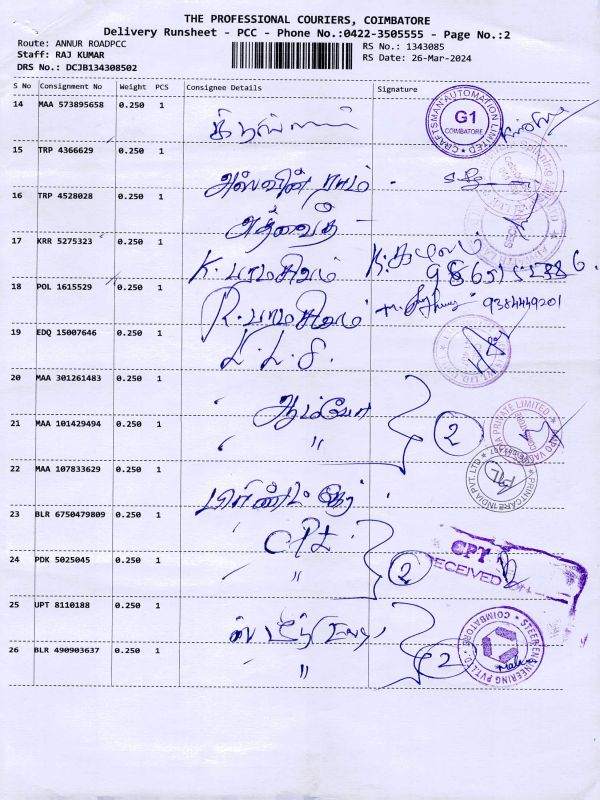 THE PROFESSIONAL COURIERS, COIMBATORE
Delivery Runsheet - PCC - Phone No.:0422-3505555 - Page No.:2
Route: ANNUR ROADPCC
Staff: RAJ KUMAR
DRS No.: DCJB134308502
RS No.: 1343085
RS Date: 26-Mar-2024
S No Consignment No Weight PCS Consignee Details Signature
14 MAA 573895658 0.250 1
CRAFTSMAN AUTOMATION LIMITED G1 COIMBATORE
15 TRP 4366629 0.250 1 அஸ்வின் ராம்
16 TRP 4528028 0.250 1 அத்வைத்
17 KRR 5275323 0.250 1 K. பரமசிவம்
18 POL 1615529 0.250 1 R. பரமசிவம் 9384449201
19 EDQ 15007646 0.250 1 K.L.S.
20 MAA 301261483 0.250 1
21 MAA 101429494 0.250 1 " 2
22 MAA 107833629 0.250 1
PRINTCARE INDIA PVT. LTD
23 BLR 6750479809 0.250 1 CPT
24 PDK 5025045 0.250 1 " 2
CPT
RECEIVED
25 UPT 8110188 0.250 1
26 BLR 490903637 0.250 1 " 2
STEER ENGINEERING PVT.LTD. COIMBATORE